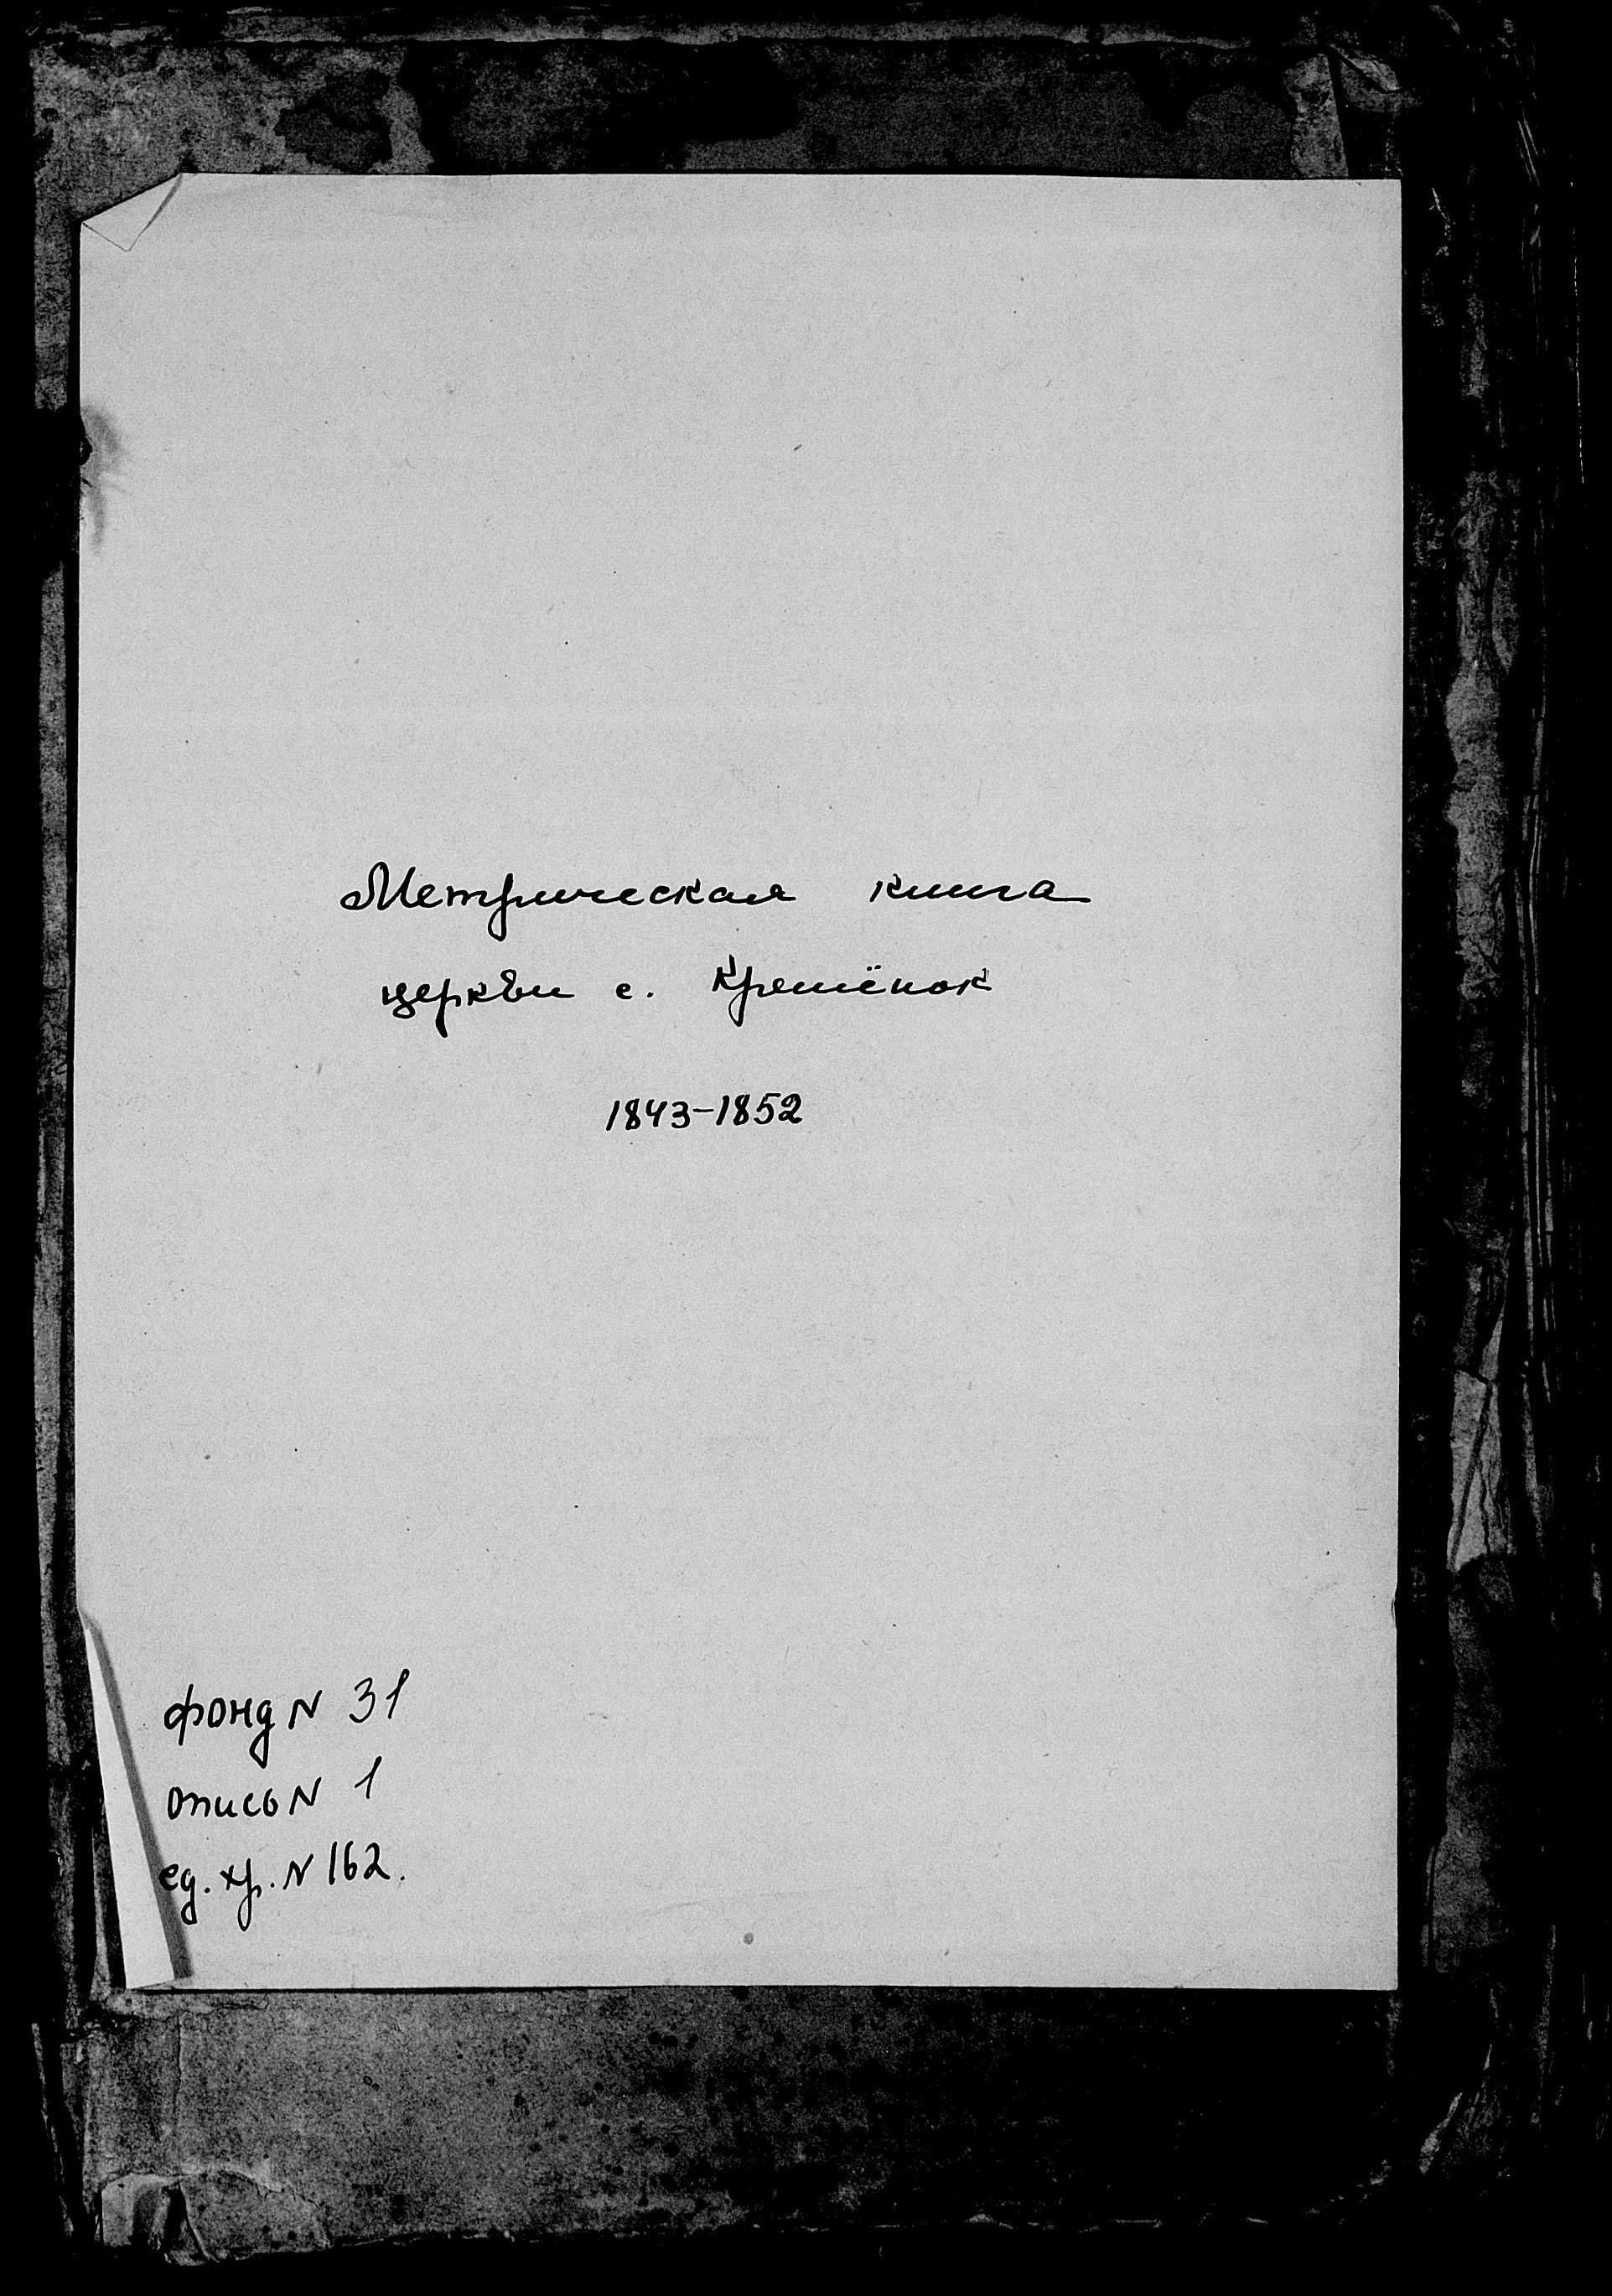 Метрическая книга
церкви с. Крешёнок
1843-1852
фонд N 31
опись N 1
ед. хр. N 162.